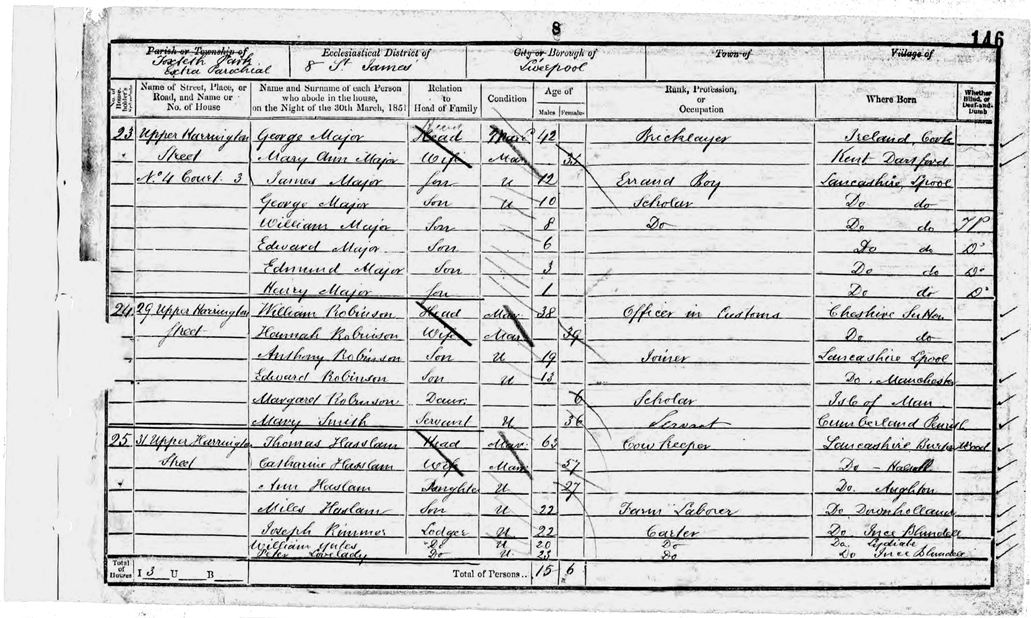 8
146
Parish or Township of Ecclesiastical District of City or Borough of Town of Village of
Toxteth Park
Extra Parochial 8 St James Liverpool
No. of House-holder's Schedule Name of Street, Place, or Road, and Name or No. of House Name and Surname of each Person who abode in the house, on the Night of the 30th March, 1851 Relation to Head of Family Condition Age of Males Females Rank, Profession, or Occupation Where Born Whether Blind, or Deaf-and-Dumb
23 Upper Harrington George Major Head Mar 42 Bricklayer Ireland, Cork
Street Mary Ann Major Wife Mar Kent Dartford
No 4 Court 3 James Major Son U 12 Errand Boy Lancashire, Lpool
George Major Son U 10 Scholar Do do
William Major Son 8 Do Do do
Edward Major Son 6 Do do Do
Edmund Major Son 3 Do do Do
Henry Major Son 1 Do do Do
24 29 Upper Harrington William Robinson Head Mar 38 Officer in Customs Cheshire Sutton
Street Hannah Robinson Wife Mar 39 Do do
Anthony Robinson Son U 19 Joiner Lancashire Lpool
Edward Robinson Son U 13 Do. Manchester
Margaret Robinson Daur. 6 Scholar Isle of Man
Mary Smith Servant U 36 Servant Cumberland
25 31 Upper Harrington Thomas Haslam Head Mar 63 Cow Keeper Lancashire
Street Catharine Haslam Wife Mar 57 Do - Halsall
Ann Haslam Daughter U 27 Do. Aughton
Miles Haslam Son U 22 Farm Laborer Do Downholland
Joseph Rimmer Lodger U 22 Carter Do Ince Blundell
William Do U 20 Do Do Lydiate
Peter Lovelady Do U 23 Do Do Ince Blundell
Total of Houses I 3 U B Total of Persons .. 15 6